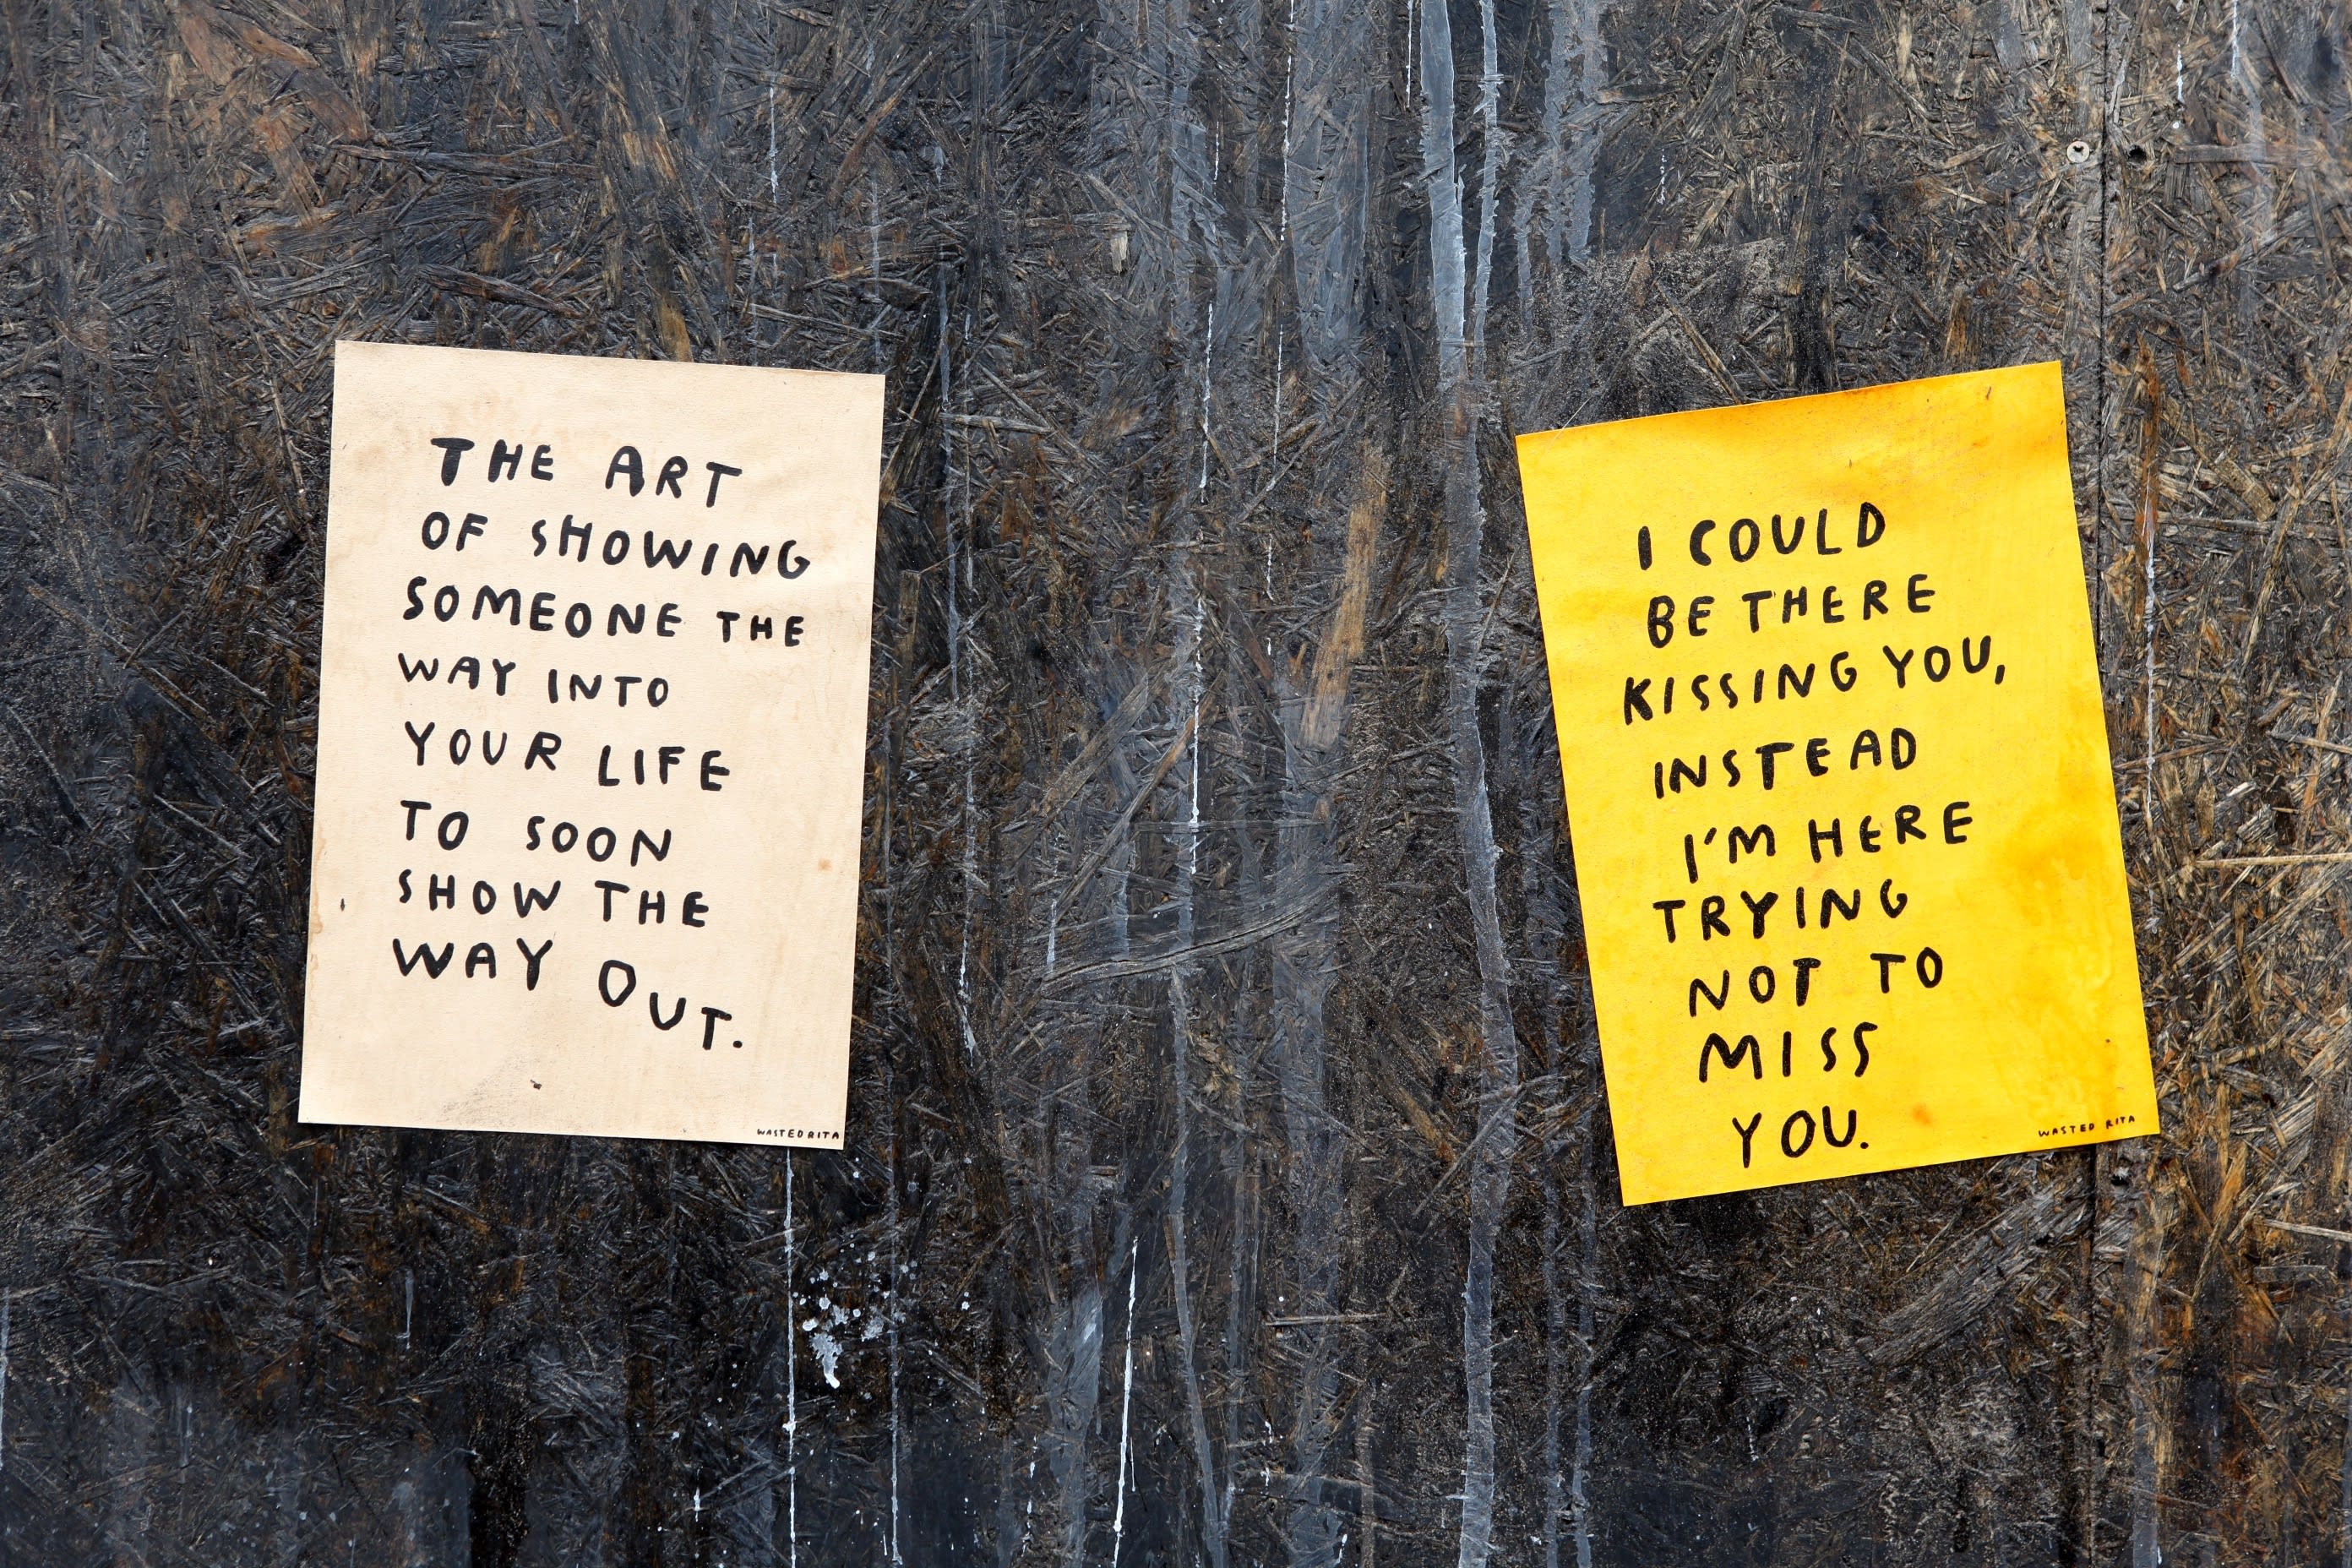 THE ART
OF SHOWING
SOMEONE THE
WAY INTO
YOUR LIFE
TO SOON
SHOW THE
WAY OUT.
WASTED RITA
I COULD
BE THERE
KISSING YOU,
INSTEAD
I'M HERE
TRYING
NOT TO
MISS
YOU.
WASTED RITA